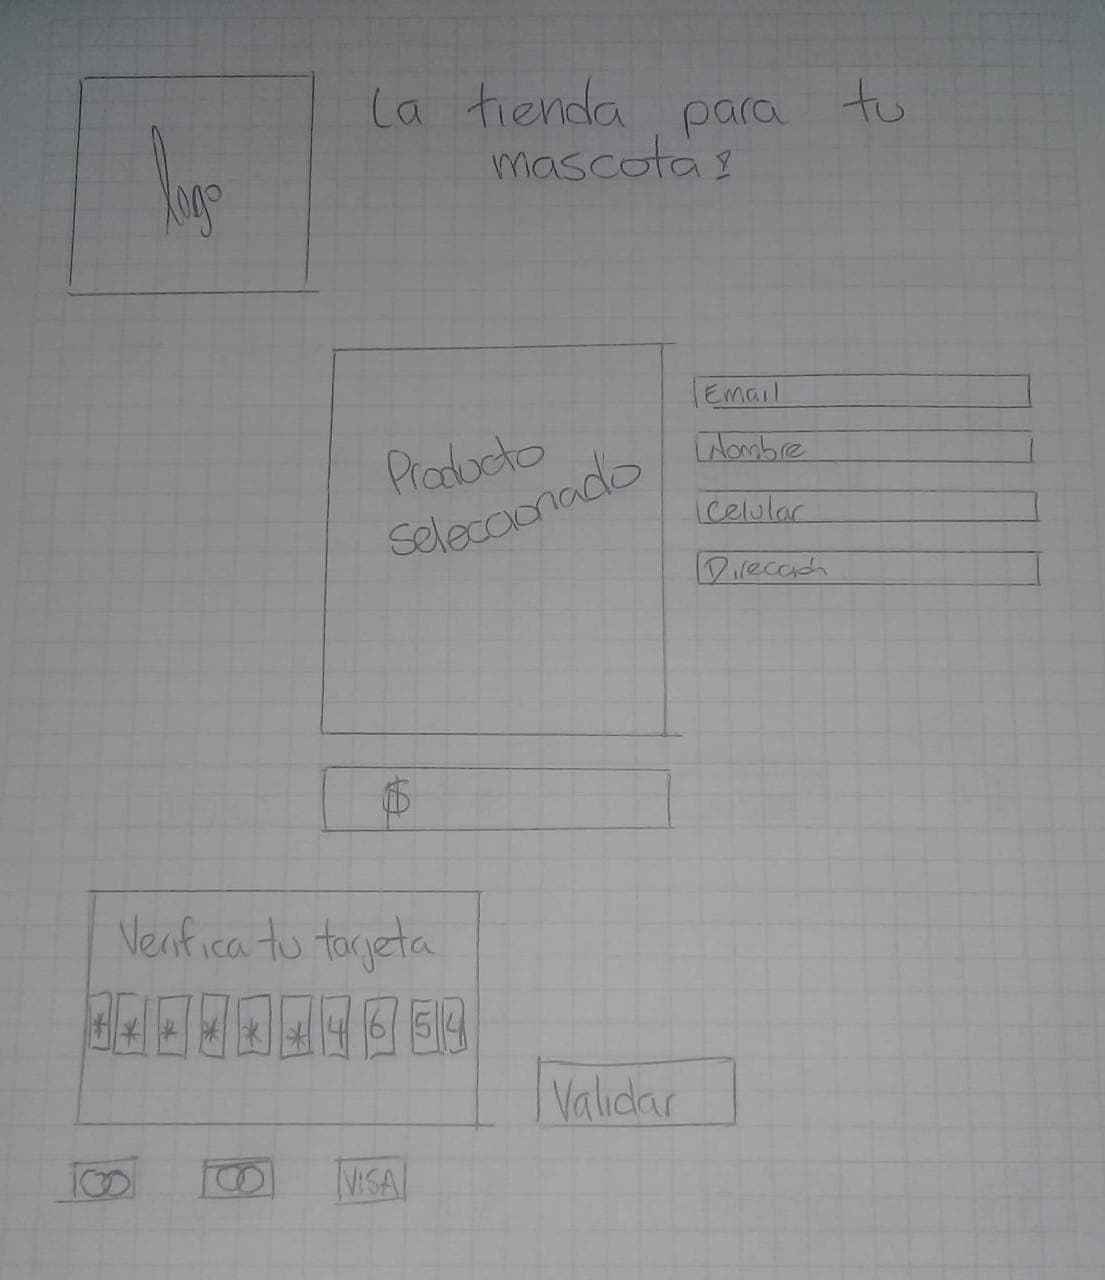 logo
La tienda para tu
mascota!
Producto
seleccionado
Email
Nombre
Celular
Dirección
$
Verifica tu tarjeta
* * * * * * 4 6 5 4
Validar
VISA